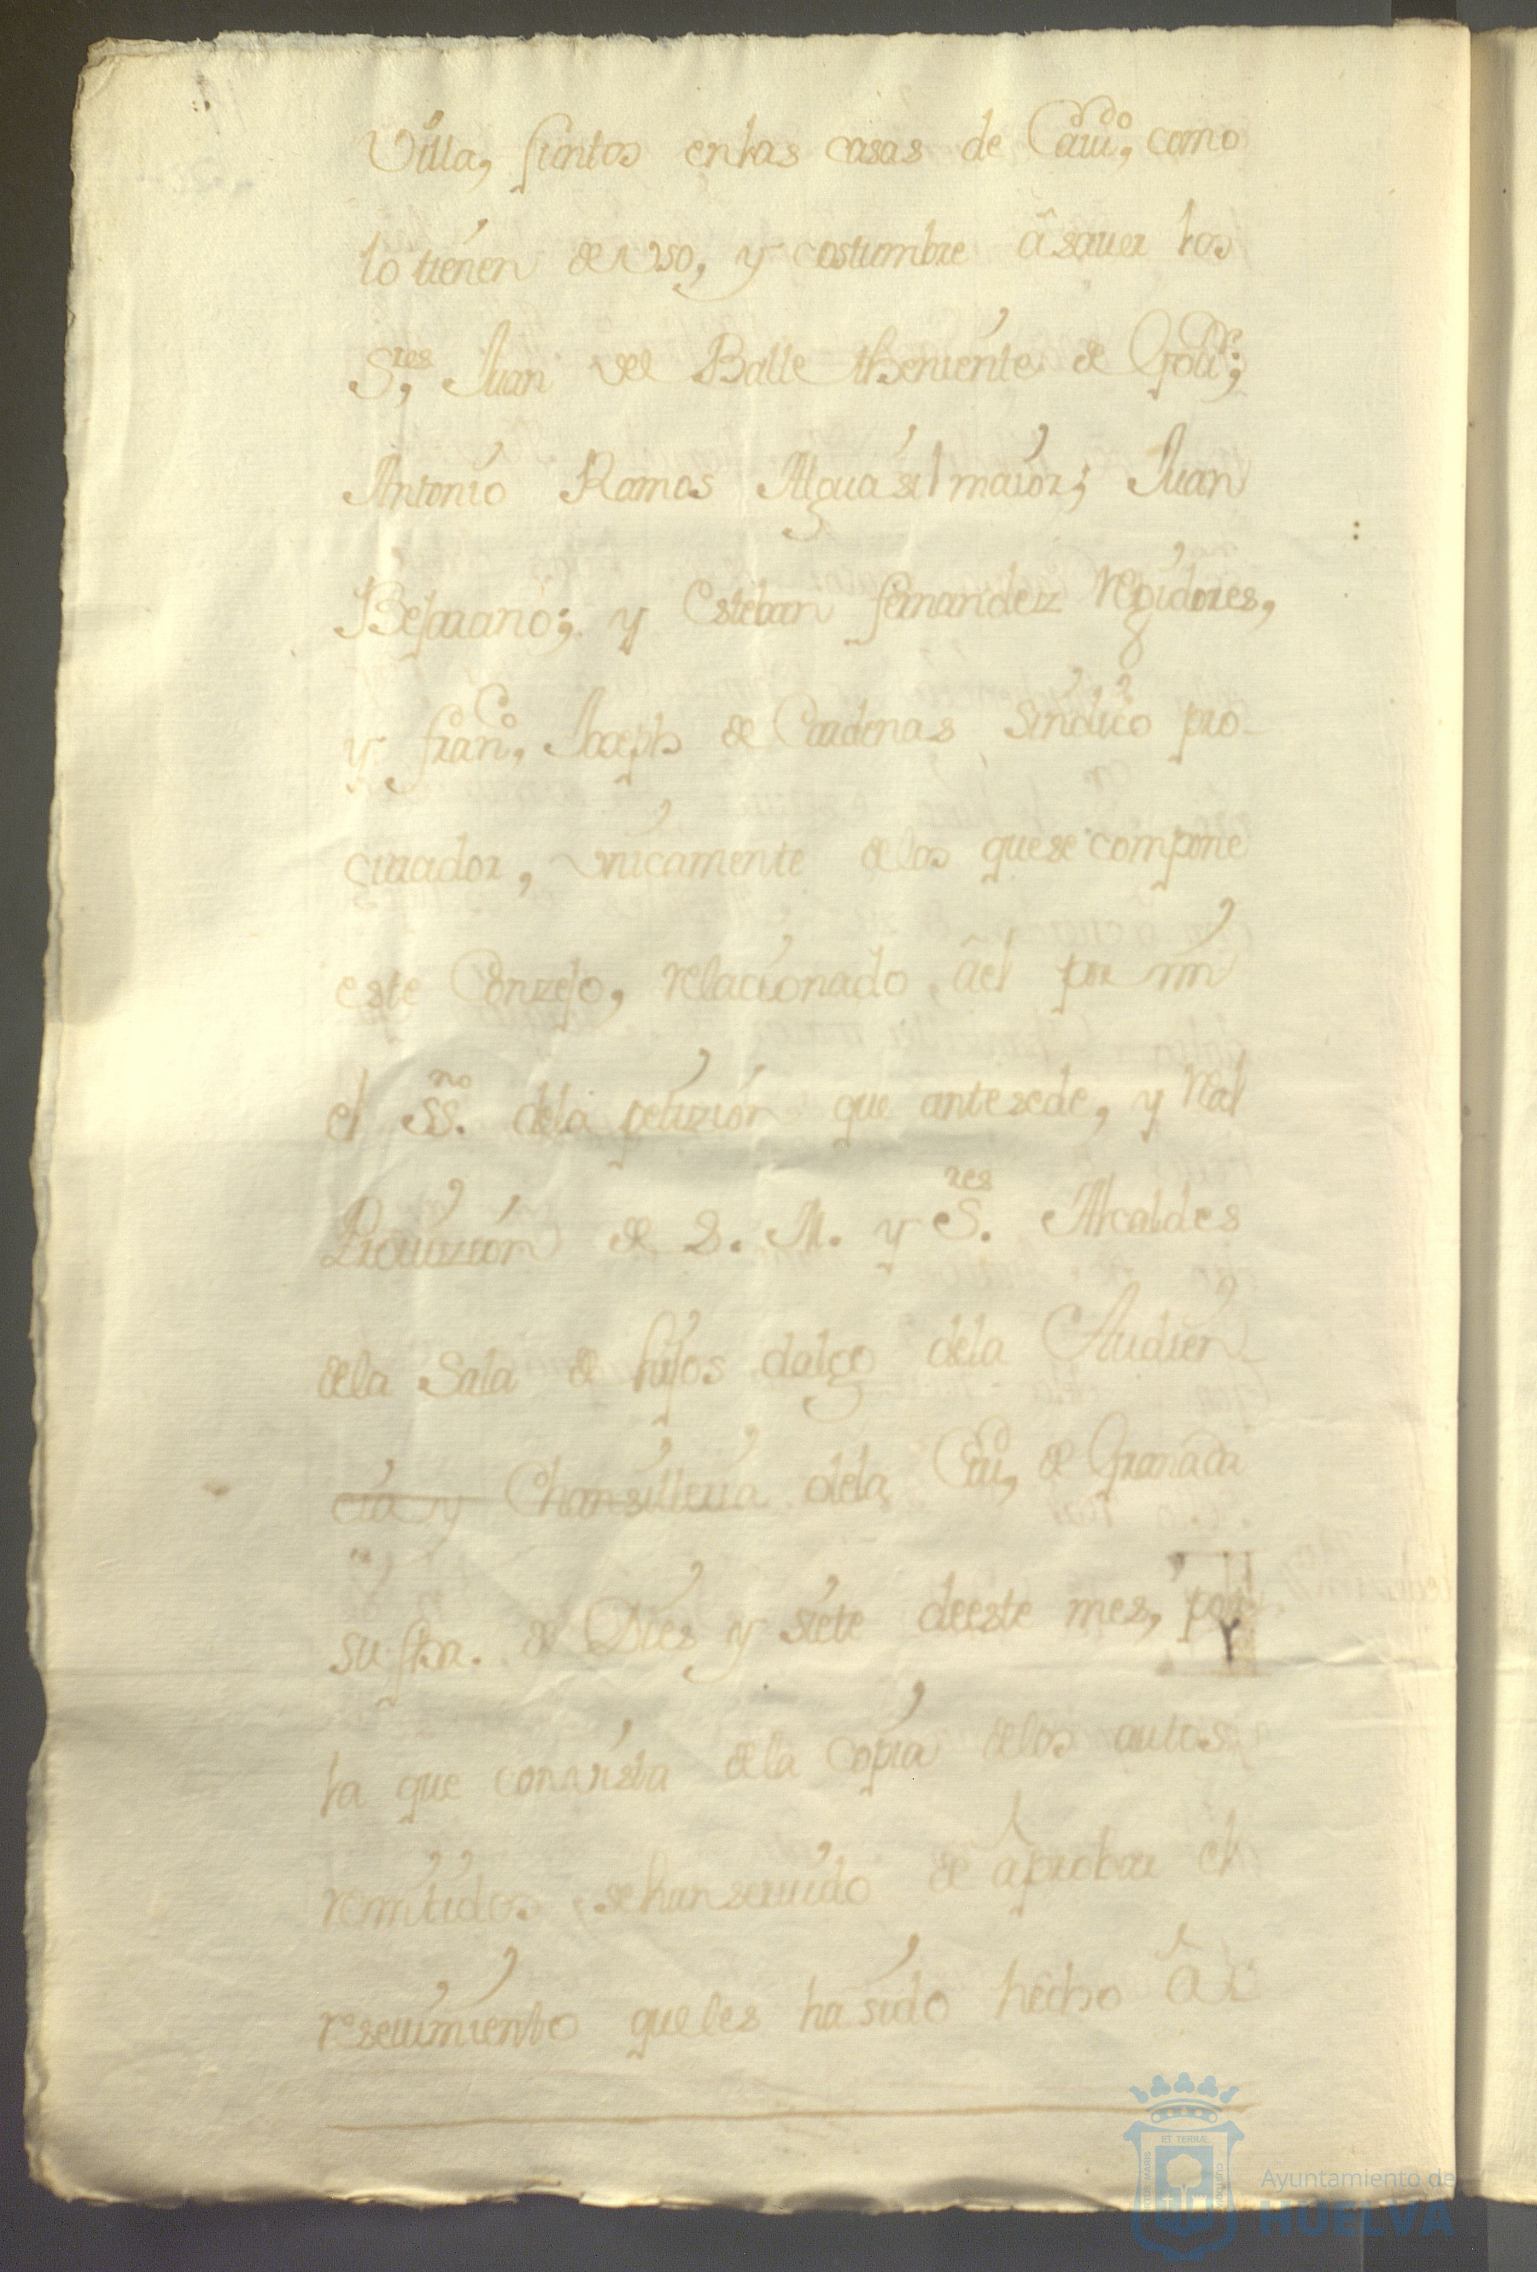 Villa, juntos enlas casas de Cavᵈᵒ, como
lo tienen de Vso, y costumbre â saver los
Sʳᵉˢ, Juan del Balle theniente de
Antonio Ramos Alguasil maior; Juan
Bejarano; y Esteban fernandez regidores,
y franᶜᵒ, Joseph de Cardenas sindico pro-
curador, vnicamente delos quese compone
este Conzejo, relacionado âel por mi
el SSⁿᵒ. dela petizion que antesede, y real
Provizion de S. M. y Sʳᵉˢ. Alcaldes
dela Sala de hijos dalgo dela Audien-
cia y Chansilleria dela Ciuᵈ, de Granada
su fha. de Dies y siete deeste mes, por
la que con vista dela copia delos autos
remitidos sehan servido de âprobar el
resevimiento queles ha sido hecho â
Ayuntamiento de
HUELVA